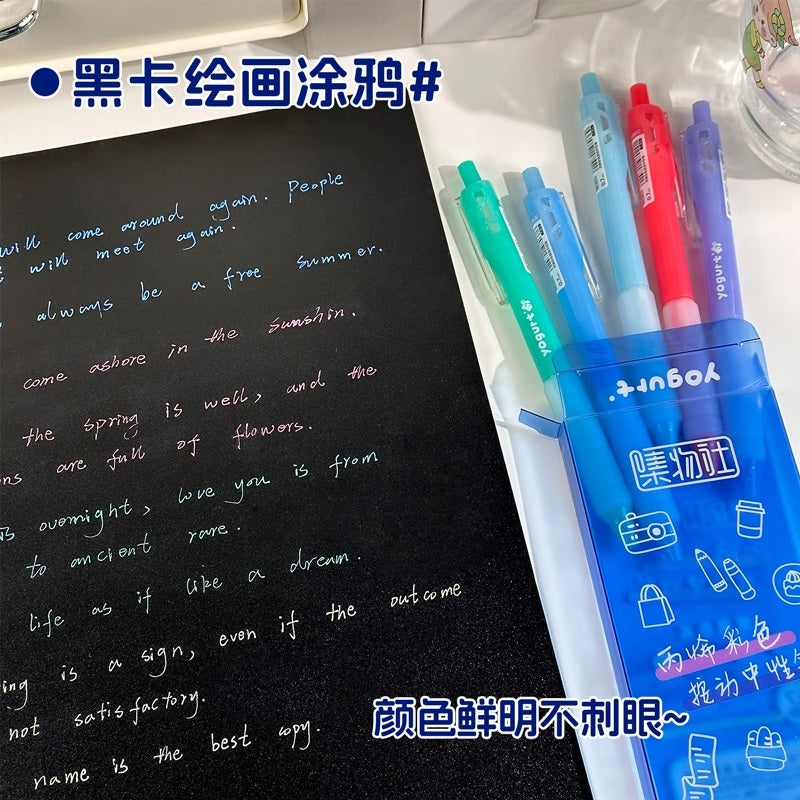 黑卡绘画涂鸦#
will come around again. People
will meet again.
always be a free summer.
come ashore in the sunshin.
the spring is well, and the
ns are full of flowers.
is overnight, love you is from
to ancient rare.
life as if like a dream.
ing is a sign, even if the outcome
not satisfactory.
name is the best copy.
yogurt
yogurt
yogurt
嗪物社
丙烯彩色
按动中性笔
颜色鲜明不刺眼~